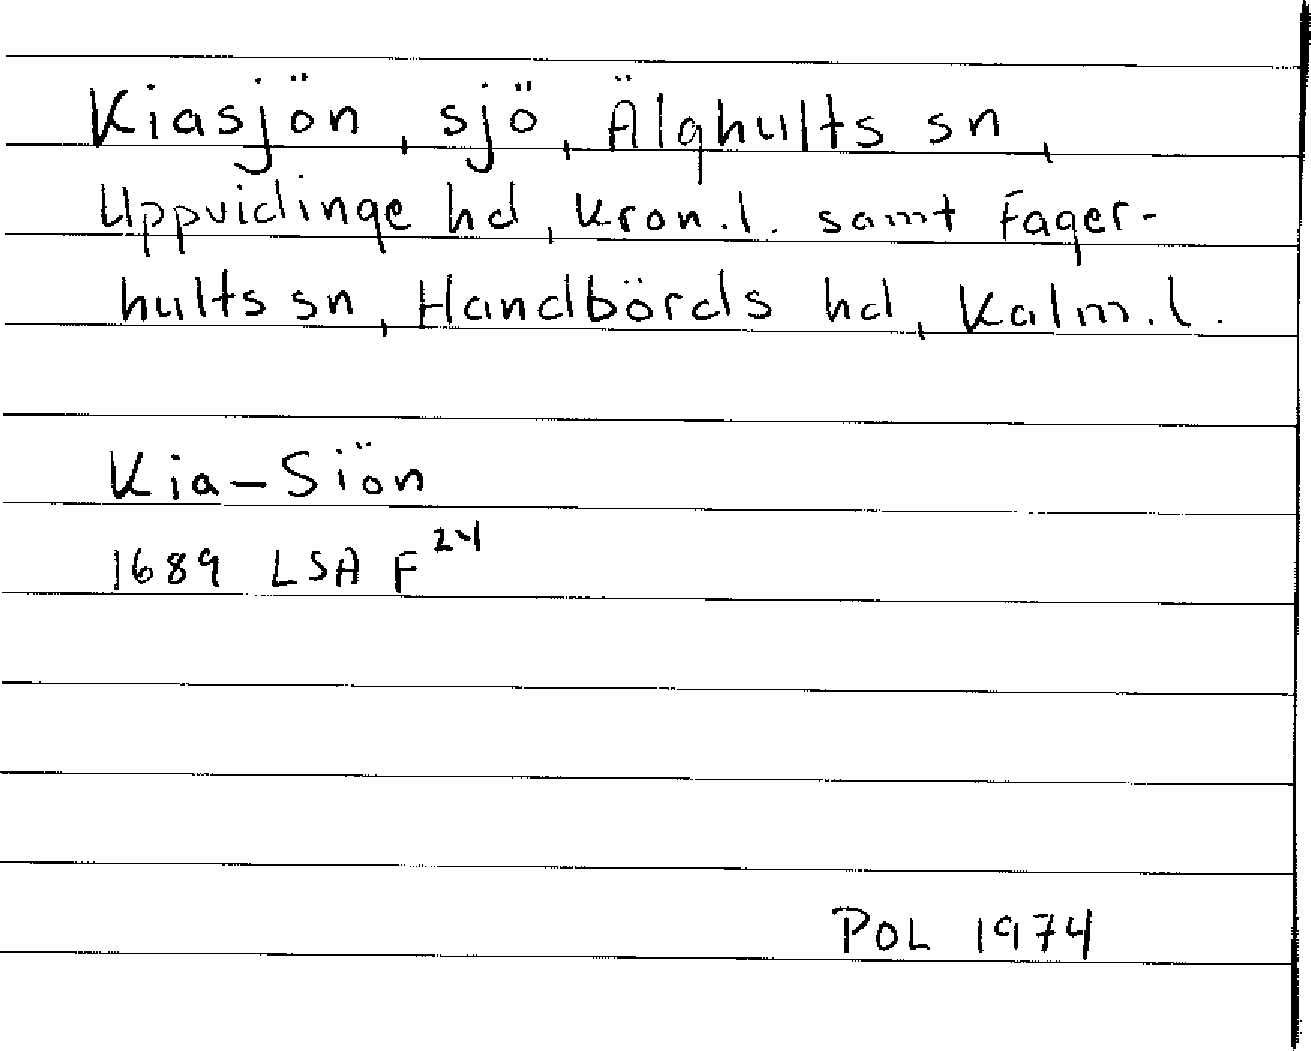 Kiasjön, sjö, Älghults sn,
Uppvidinge hd, Kron.l. samt Fager-
hults sn, Handbörds hd, Kalm.l.
Kia-Siön
1689 LSA F²⁴
POL 1974